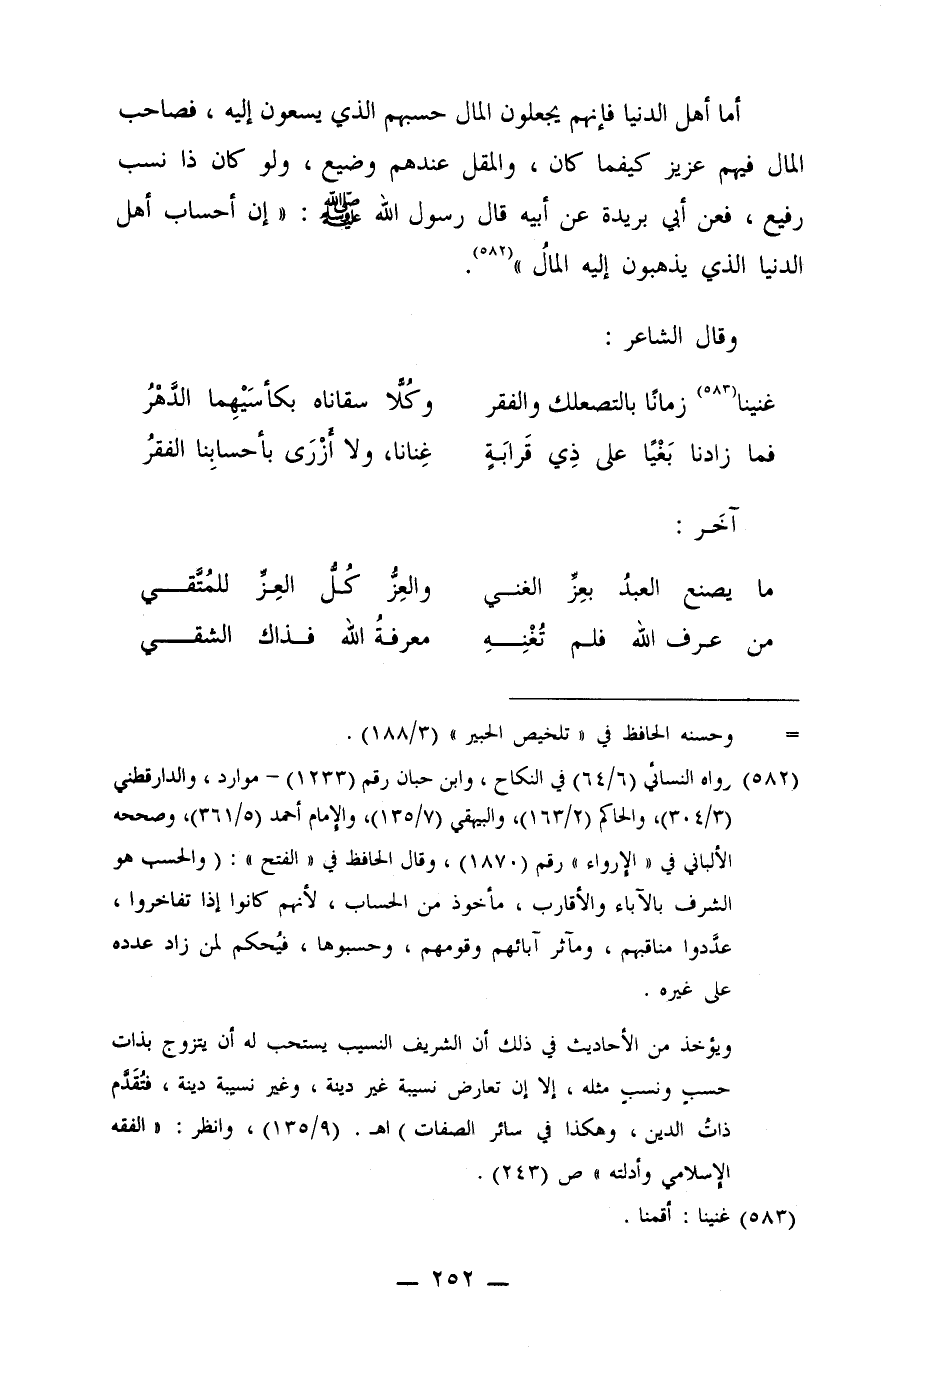 أما أهل الدنيا فإنهم يجعلون المال حسبهم الذي يسعون إليه ، فصاحب
المال فيهم عزيز كيفما كان ، والمقل عندهم وضيع ، ولو كان ذا نسب
رفيع ، فعن أبي بريدة عن أبيه قال رسول الله ﷺ : « إن أحساب أهل
الدنيا الذي يذهبون إليه المالُ »(٥٨٢).
وقال الشاعر :
غنينا(٥٨٣) زمانًا بالتصعلك والفقر وكُلًّا سقاناه بكأسَيْهِما الدَّهْرُ
فما زادنا بَغْيًا على ذِي قَرابَةٍ غِنانا، ولا أَزْرَى بأحسابِنا الفقرُ
آخَر :
ما يصنع العبدُ بعِزِّ الغنـي والعِزُّ كُـلُّ العِـزِّ للمُتَّقـــي
من عـرف الله فلـم تُغْنِـــهِ معرفـةُ الله فـذاك الشقــي
= وحسنه الحافظ في « تلخيص الحبير » (١٨٨/٣) .
(٥٨٢) رواه النسائي (٦٤/٦) في النكاح ، وابن حبان رقم (١٢٣٣) – موارد ، والدارقطني
(٣٠٤/٣)، والحاكم (١٦٣/٢)، والبيهقي (١٣٥/٧)، والإمام أحمد (٣٦١/٥)، وصححه
الألباني في « الإرواء » رقم (١٨٧٠) ، وقال الحافظ في « الفتح » : ( والحسب هو
الشرف بالآباء والأقارب ، مأخوذ من الحساب ، لأنهم كانوا إذا تفاخروا ،
عدَّدوا مناقبهم ، ومآثر آبائهم وقومهم ، وحسبوها ، فيُحكم لمن زاد عدده
على غيره .
ويؤخذ من الأحاديث في ذلك أن الشريف النسيب يستحب له أن يتزوج بذات
حسبٍ ونسبٍ مثله ، إلا إن تعارض نسيبة غير دينة ، وغير نسيبة دينة ، فتُقَدَّم
ذاتُ الدين ، وهكذا في سائر الصفات ) اهـ . (١٣٥/٩) ، وانظر : « الفقه
الإسلامي وأدلته » ص (٢٤٣) .
(٥٨٣) غنينا : أقمنا .
— ٢٥٢ —